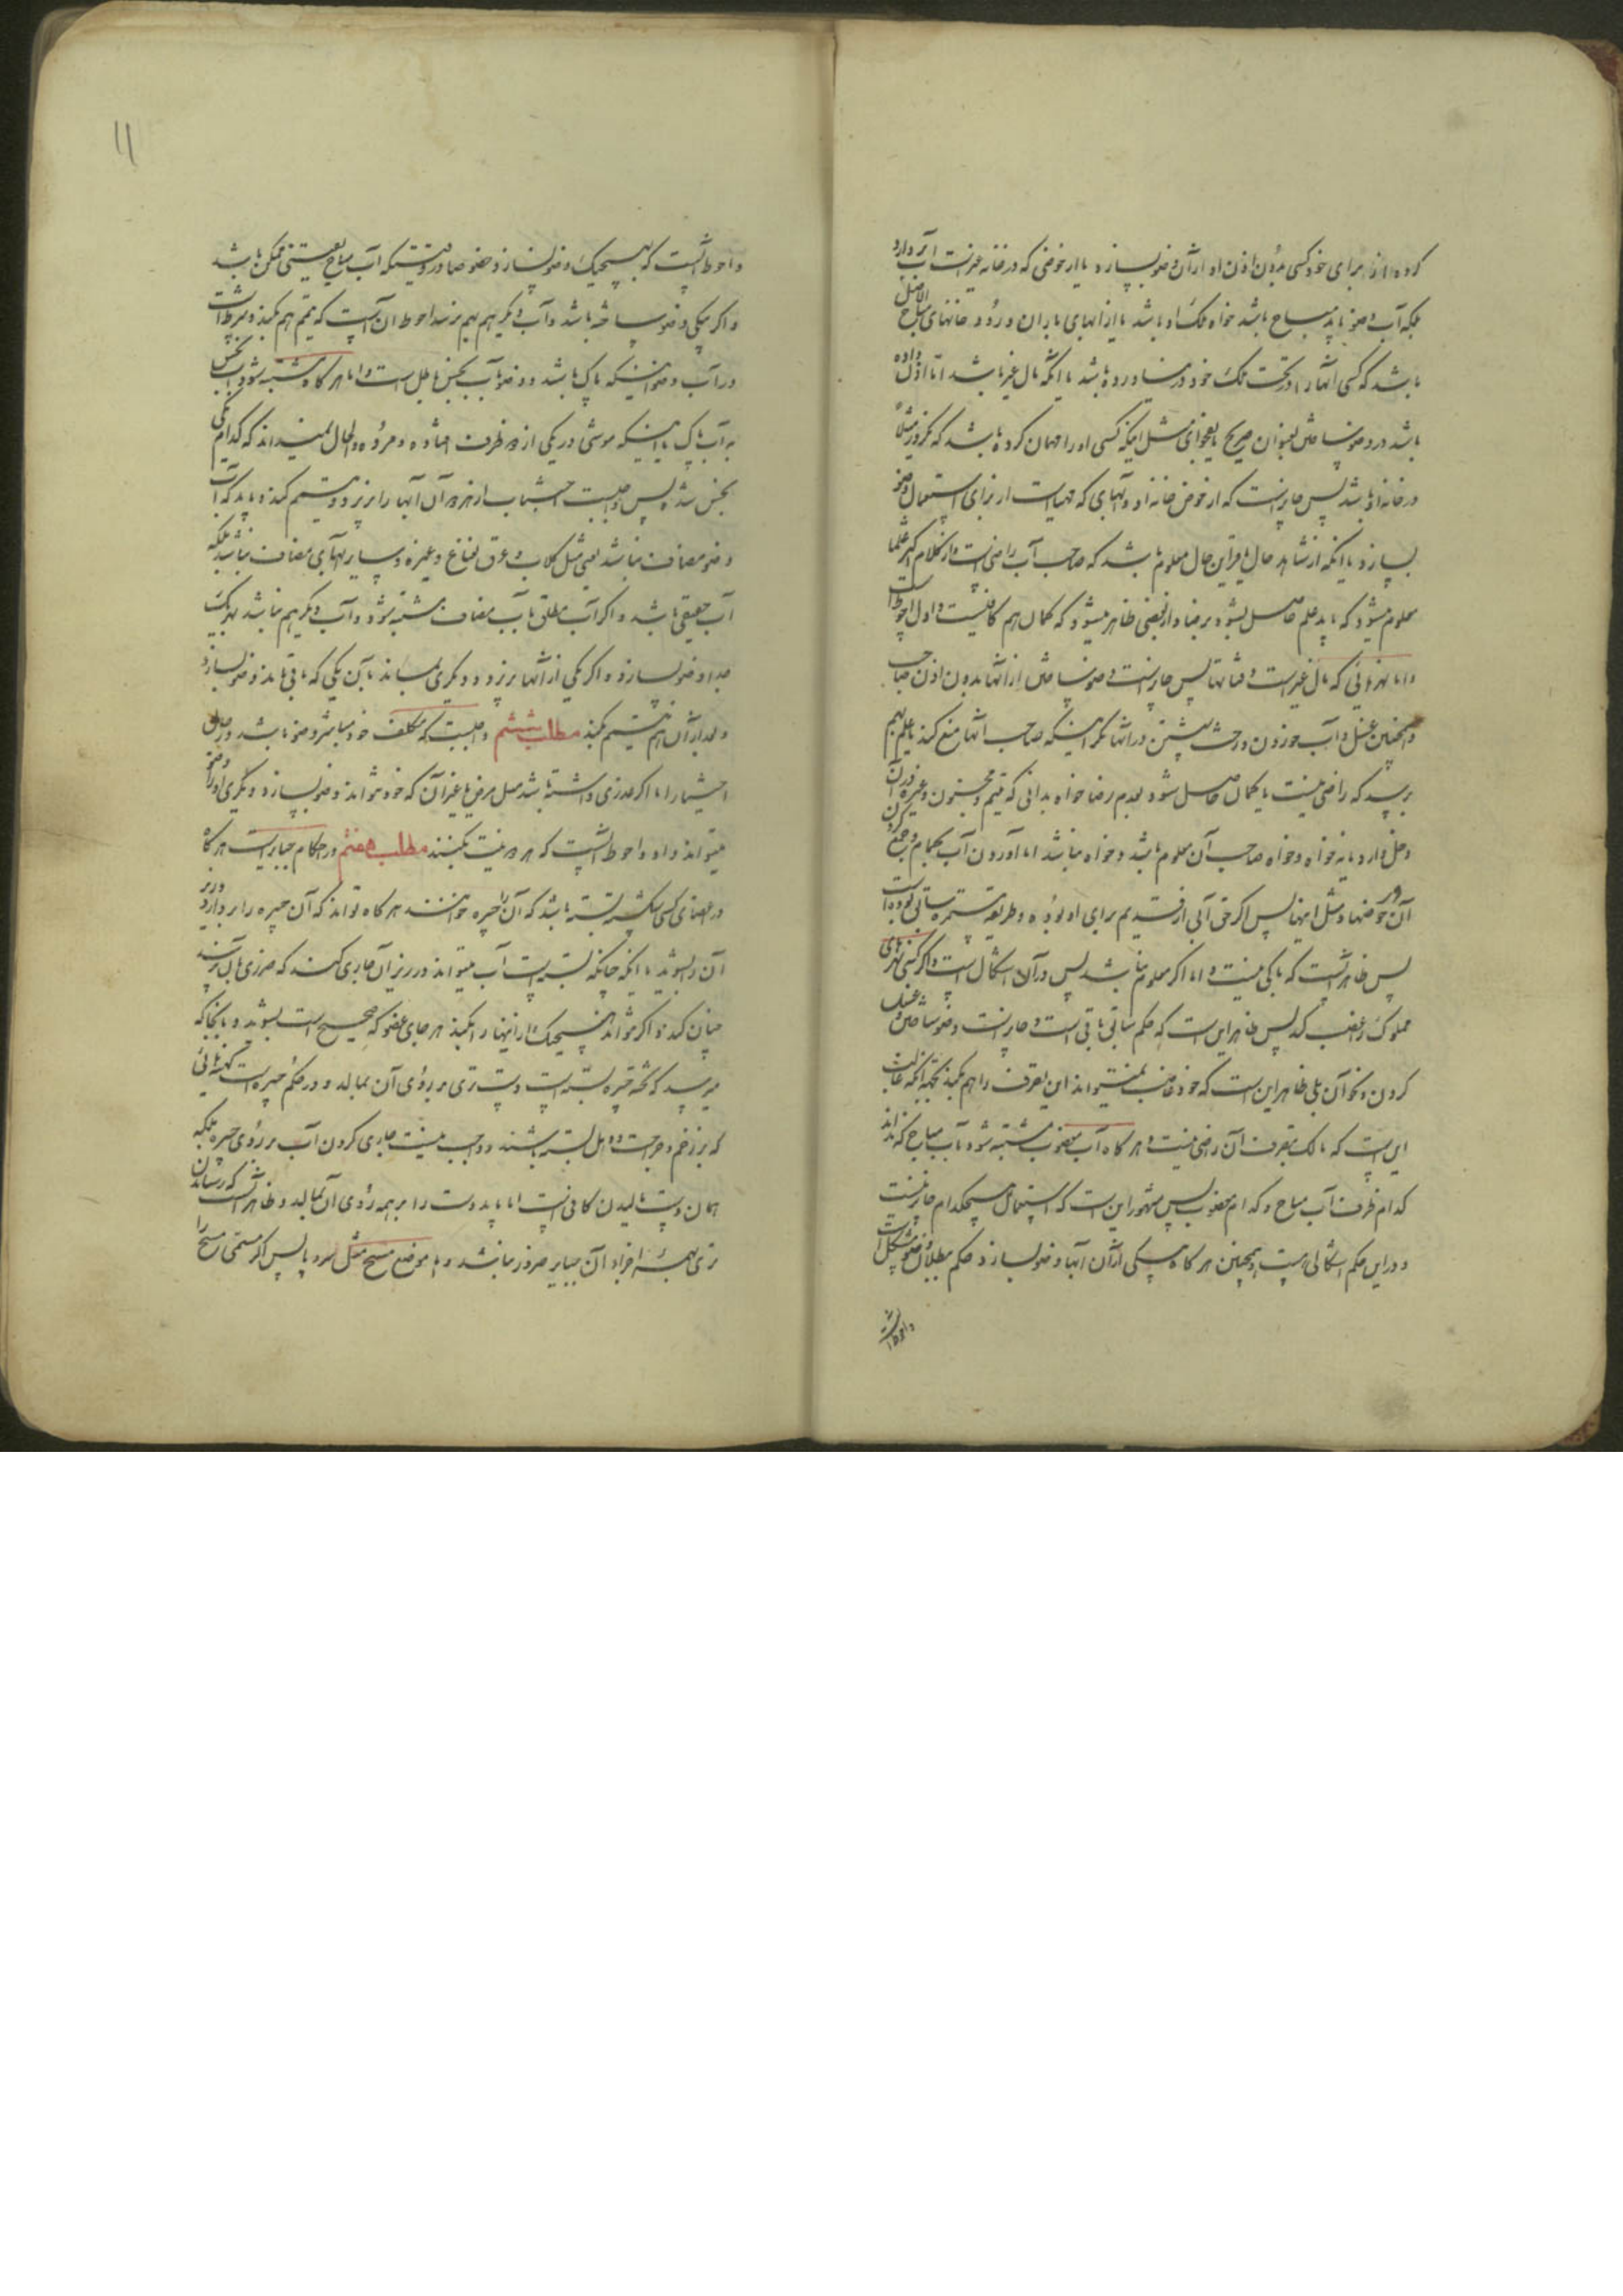 کرده انرا برای خود کسی بدون اذن او از آن وضو بسازد یا از حوضی که در خانه غیر است آب بردارد
بلکه آب وضو باید مباح باشد خواه ملک او باشد یا از آبهای باران و رود خانهای مباح الاصل
باشد که کسی آنها را در تحت ملک خود در نیاورده باشد یا آنکه مال غیر باشد اما اذن داده
باشد در وضو ساختن بعنوان صریح یا بفحوای مثل اینکه کسی او را مهمان کرده باشد که یکروز مثلا
در خانه او باشد پس جایز است که از حوض خانه او و آبهای که مهیاست از برای استعمال وضو
بسازد یا اینکه از شاهد حال یا قراین حال معلوم باشد که صاحب آب راضی است و از کلام اکثر علما
معلوم میشود که باید علم حاصل بشود برضا و از بعضی ظاهر میشود که گمان هم کافیست و اول احوط است
و اما نهرهائی که مال غیر است و قناتها پس جایز است وضو ساختن از آنها بدون اذن صاحب
و همچنین غسل و آب خوردن و رخت شستن در آنها مگر اینکه صاحب آنها منع کند یا علم بهم
برسد که راضی نیست یا گمان حاصل شود بعدم رضا خواه بدانی که یتیم و مجنون و غیره در آن
دخل دارد یا نه خواه و خواه صاحب آن معلوم باشد و خواه نباشد اما آوردن آب بحمام و جمع کردن
آن در حوضها و مثل اینها پس اگر حق آبی از قدیم برای او بوده و طریقه مستمره سابق بوده است
پس ظاهر آنست که باکی نیست و اما اگر معلوم نباشد پس در آن اشکال است و اگر کسی نهرهای
مملوک را غصب کند پس ظاهر این است که حکم سابق باقی است و جایز است وضو ساختن و غسل
کردن و نحو آن بلی ظاهر این است که خود غاصب نمیتواند این تصرف را هم بکند بجهة آنکه غالب
این است که مالک بتصرف آن راضی نیست و هر گاه آب مغصوب مشتبه شود بآب مباح که نداند
کدام ظرف آب مباح و کدام مغصوب پس مشهور این است که استعمال هیچکدام جایز نیست
و در این حکم اشکالی هست و همچنین هر گاه بیکی از آن آبها وضو بسازد حکم ببطلان وضو مشکل است
و احوط آنست
۱۱
و احوط آنست که بهیچیک وضو نسازد خصوصا در وقتیکه آب مباح یقینی ممکن باشد
و اگر بیکی وضو ساخته باشد و آب دیگر هم بهم نرسد احوط آن است که تیمم هم بکند و شرط است
در آب وضو اینکه پاک باشد و وضو بآب نجس باطل است و اما هر گاه مشتبه شود آب نجس
به آب پاک یا اینکه موشی در یکی از دو ظرف افتاده و مرده و الحال نمیداند که کدام یکی
نجس شده پس واجبست اجتناب از هر دو آن آبها را بریزد و تیمم کند و باید که آب
وضو مضاف نباشد یعنی مثل گلاب و عرق نعناع و غیره و سایر آبهای مضاف نباشد بلکه
آب حقیقی باشد و اگر آب مطلق بآب مضاف مشتبه شود و آب دیگر هم نباشد بهر یک
جدا وضو بسازد و اگر یکی از آنها بریزد و دیگری بماند بآن یکی که باقی ماند وضو بسازد
و بعد از آن هم تیمم بکند مطلب ششم واجبست که مکلف خود مباشر وضو باشد در حال
اختیار اما اگر عذری داشته باشد مثل مرض یا غیر آن که خود نتواند وضو بسازد دیگری او را وضو
میتواند داد و احوط آنست که هر دو نیت بکنند مطلب هفتم در احکام جبایر است هر گاه
در اعضای کسی شکسته بسته باشد که آن را جبیره خوانند هر گاه تواند که آن جبیره را بردارد و زیر
آن را بشوید یا آنکه چنانکه بسته است آب میتواند در زیر آن جاری کند که ضرری بآن نرسد
چنان کند و اگر نتواند هیچیک از اینها را بکند هر جای عضو که صحیح است بشوید و بآنجا که
میرسد که تخته و غیره بسته است دست تری بر روی آن بمالد و در حکم جبیره است کهنه هائی
که بر زخم و جراحت و دمل بسته باشند و واجب نیست جاری کردن آب بر روی جبیره بلکه
همان دست مالیدن کافی است اما باید دست را بر همه روی آن بمالد و ظاهر آنست که رساندن
تری بهمه اجزاء آن جبایر ضرور نباشد و اما موضع مسح مثل سر و پا پس اگر مسمی مسح را